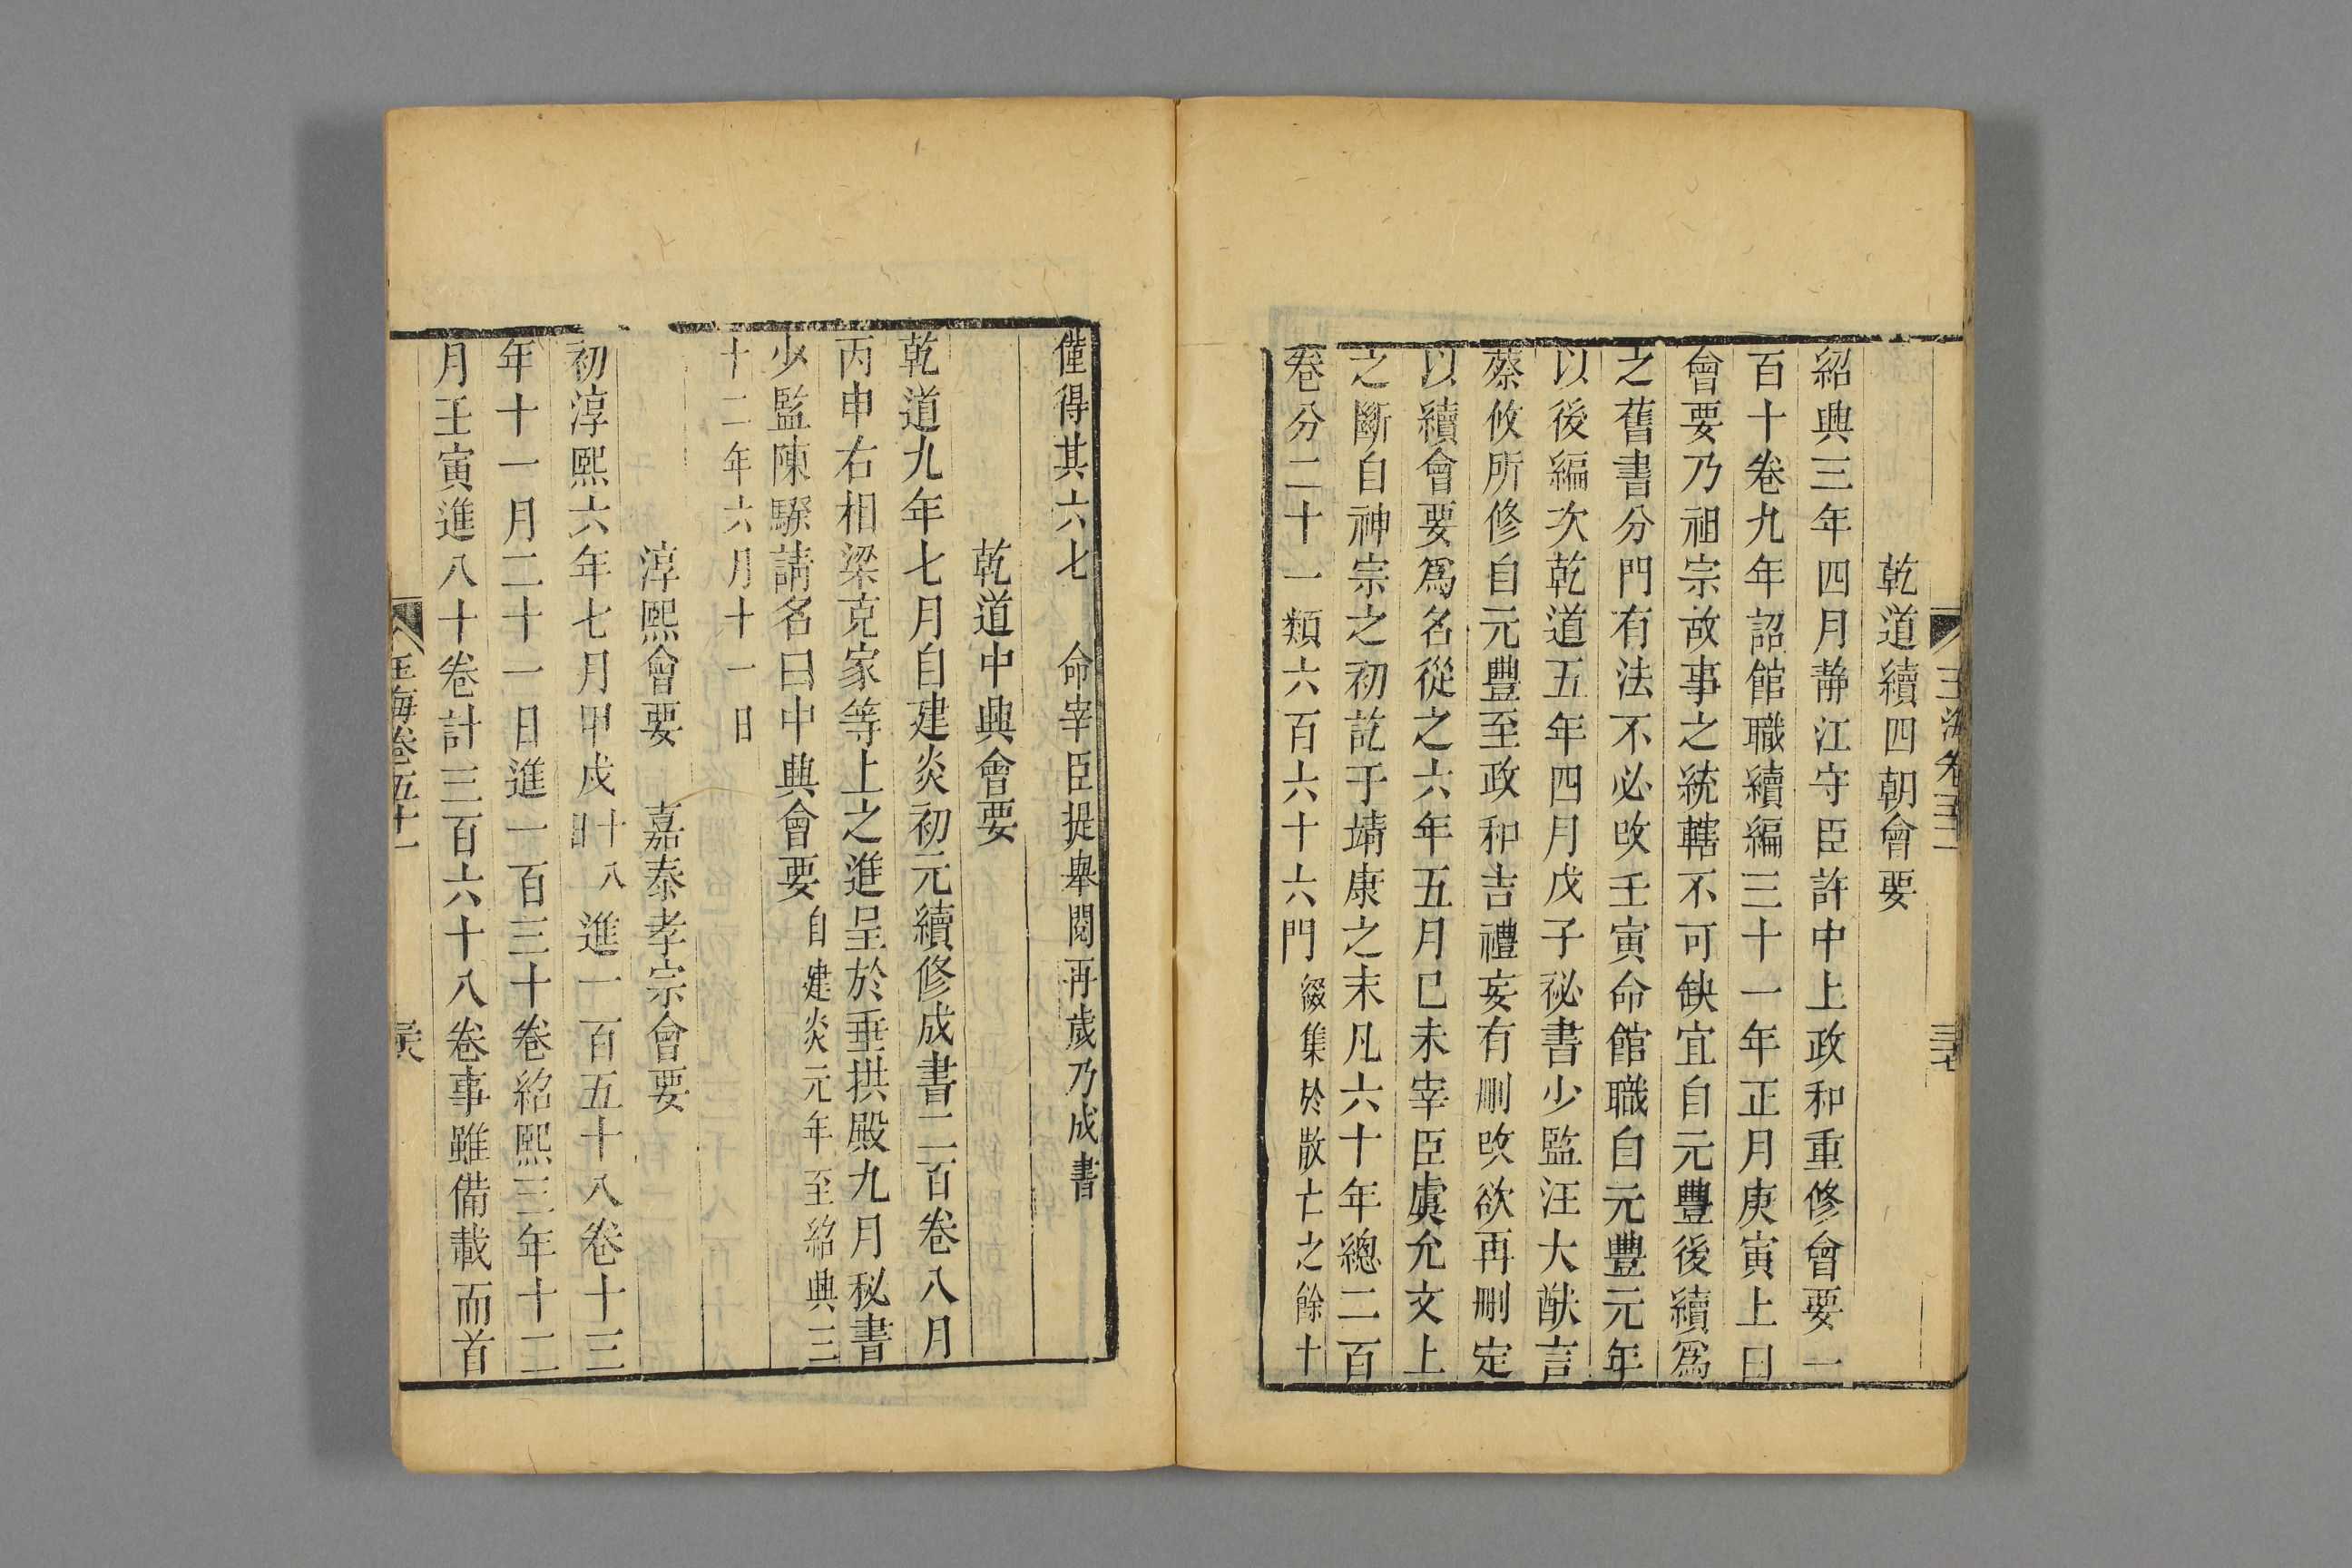 玉海卷五十一
三十七
乾道續四朝會要
紹興三年四月靜江守臣許中上政和重修會要一
百十卷九年詔館職續編三十一年正月庚寅上曰
會要乃祖宗故事之統轄不可缺宜自元豐後續爲
之舊書分門有法不必改壬寅命館職自元豐元年
以後編次乾道五年四月戊子祕書少監汪大猷言
蔡攸所修自元豐至政和吉禮妄有刪改欲再刪定
以續會要爲名從之六年五月己未宰臣虞允文上
之斷自神宗之初訖于靖康之末凡六十年總二百
卷分二十一類六百六十六門綴集於散亡之餘十
僅得其六七　命宰臣提舉閱再歲乃成書
乾道中興會要
乾道九年七月自建炎初元續修成書二百卷八月
丙申右相梁克家等上之進呈於垂拱殿九月秘書
少監陳騤請名曰中興會要自建炎元年至紹興三
十二年六月十一日
淳熙會要　嘉泰孝宗會要
初淳熙六年七月甲戌十八日進一百五十八卷十三
年十一月二十一日進一百三十卷紹熙三年十二
月壬寅進八十卷計三百六十八卷事雖備載而首
玉海卷五十一